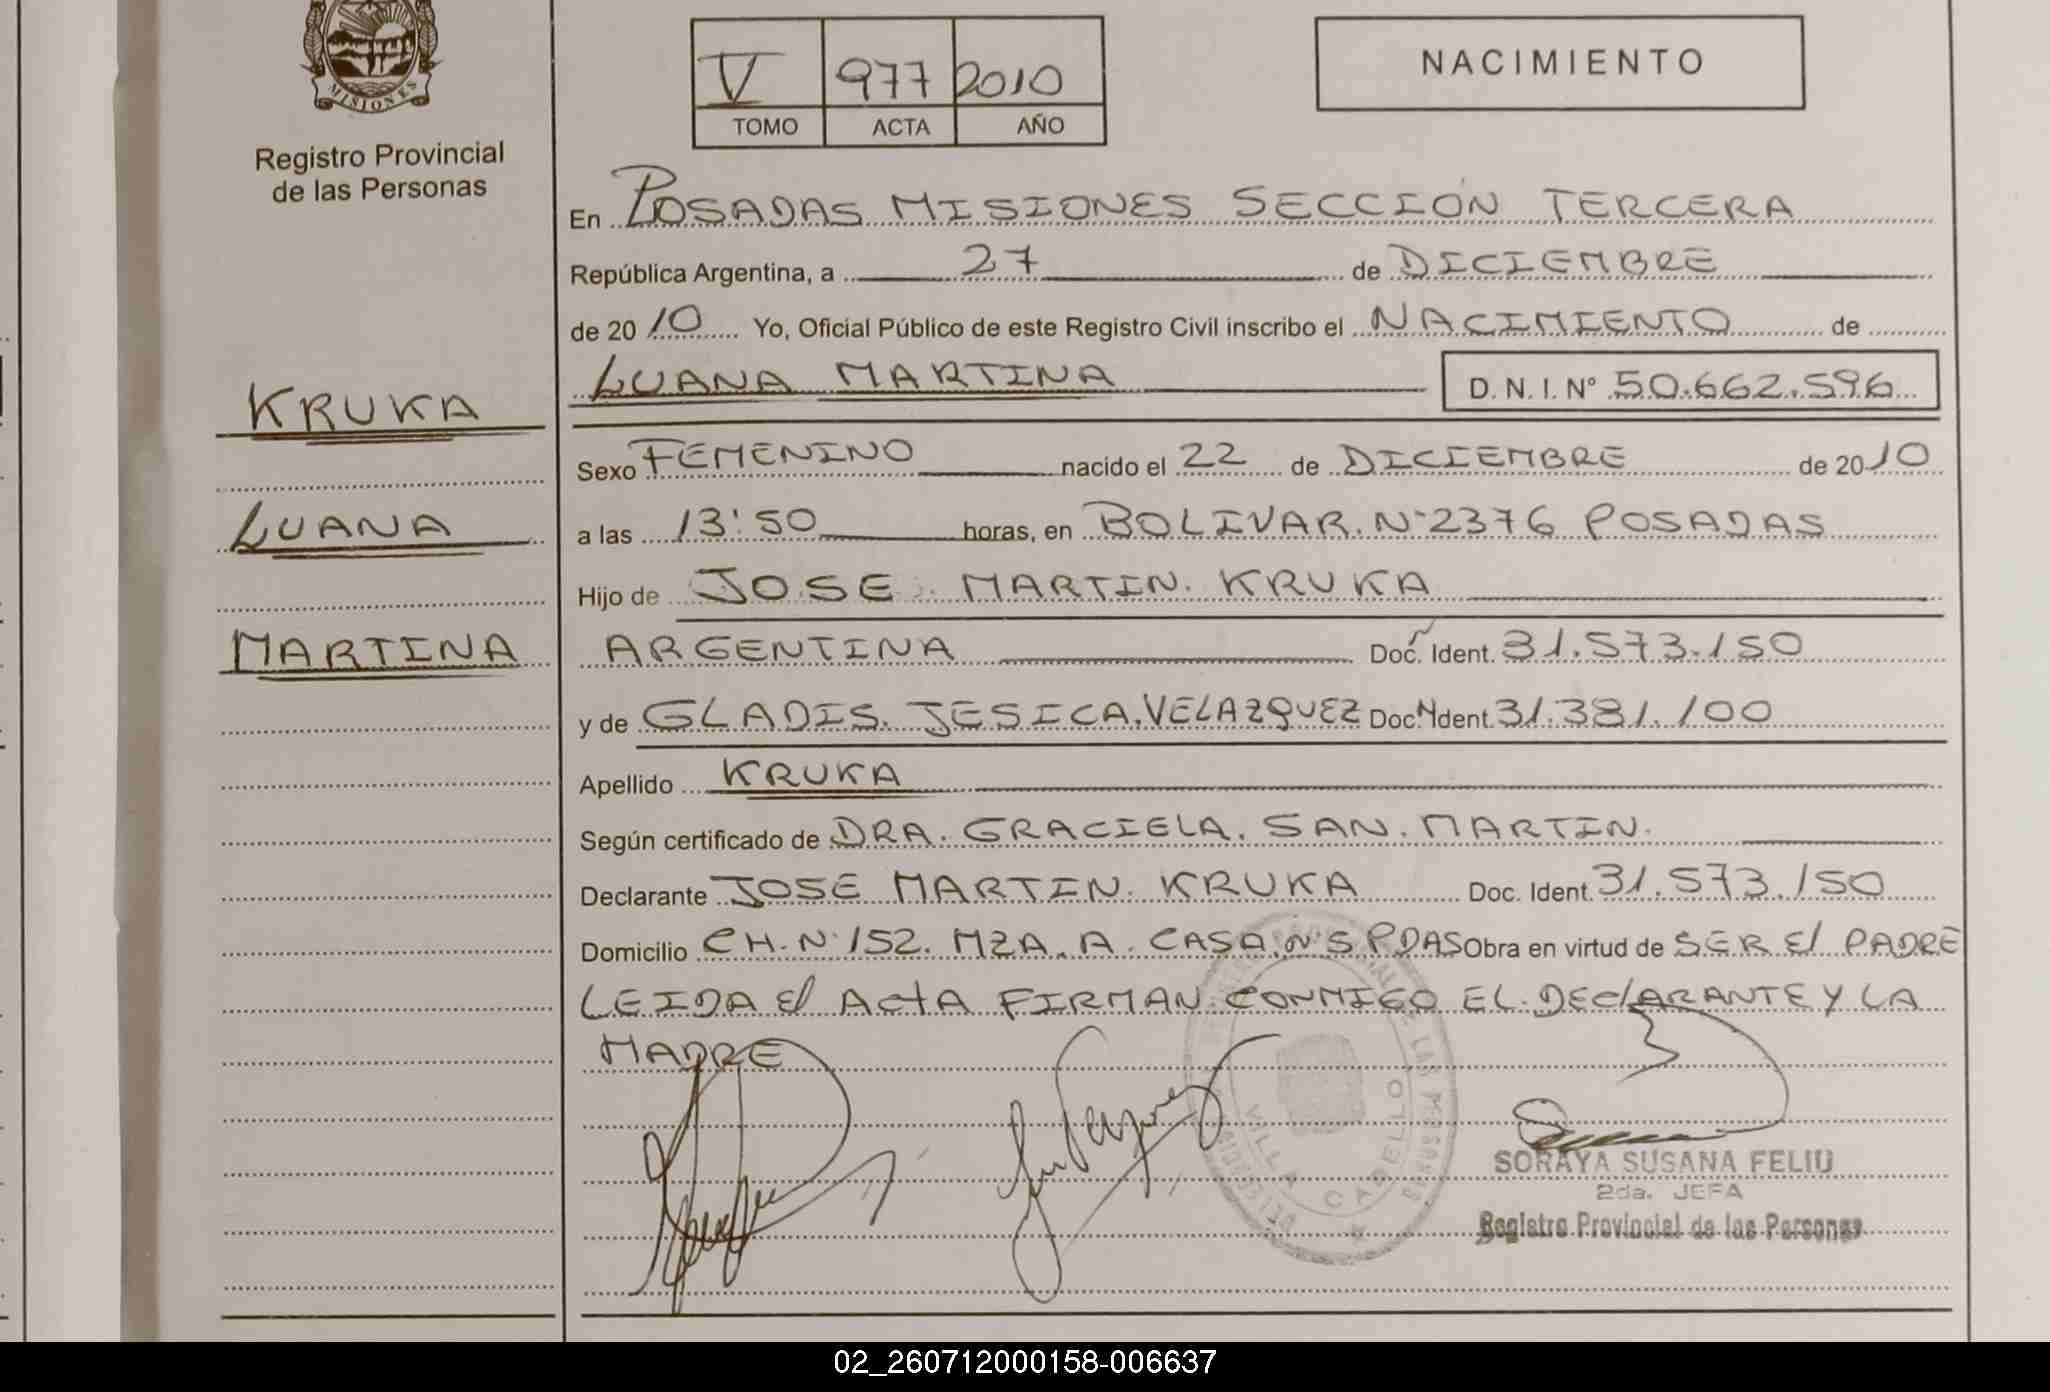 MISIONES
Registro Provincial
de las Personas
V 977 2010
TOMO ACTA AÑO
NACIMIENTO
KRUKA
LUANA
MARTINA
En POSADAS MISIONES SECCIÓN TERCERA
República Argentina, a 27 de DICIEMBRE
de 2010 Yo, Oficial Público de este Registro Civil inscribo el NACIMIENTO de
LUANA MARTINA D. N. I. Nº 50.662.596
Sexo FEMENINO nacido el 22 de DICIEMBRE de 2010
a las 13:50 horas, en BOLIVAR. Nº 2376 POSADAS
Hijo de JOSE MARTIN. KRUKA
ARGENTINA Doc. Ident. 31.573.150
y de GLADIS. JESICA. VELAZQUEZ Doc. Ident. 31.381.100
Apellido KRUKA
Según certificado de DRA. GRACIELA. SAN. MARTIN.
Declarante JOSE MARTIN. KRUKA Doc. Ident. 31.573.150
Domicilio CH. Nº 152. MZA. A. CASA Nº 5 PDAS Obra en virtud de SER El PADRE
LEIDA El ACtA FIRMAN CONMIGO EL DEClARANTE Y LA
MADRE
VILLA CABELLO
SORAYA SUSANA FELIU
2da. JEFA
Registro Provincial de las Personas
02_260712000158-006637